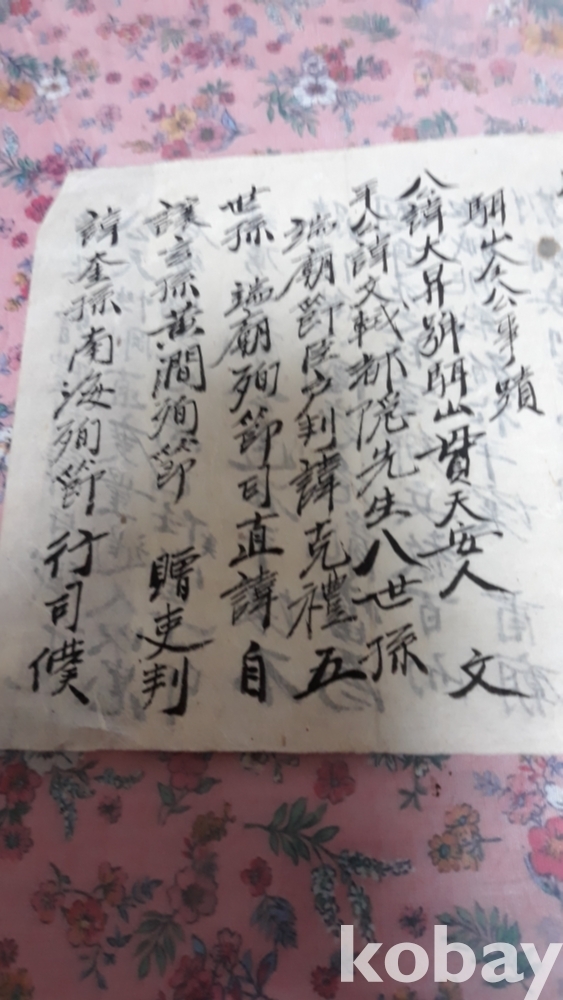 關山全公事蹟
公諱大昇號關山貫天安人 文
平公諱文軾都隱先生八世孫
端廟節臣戶判諱克禮五
世孫 端廟殉節司直諱自
讓玄孫黃澗殉節 贈吏判
諱奎孫南海殉節行司僕
kobay